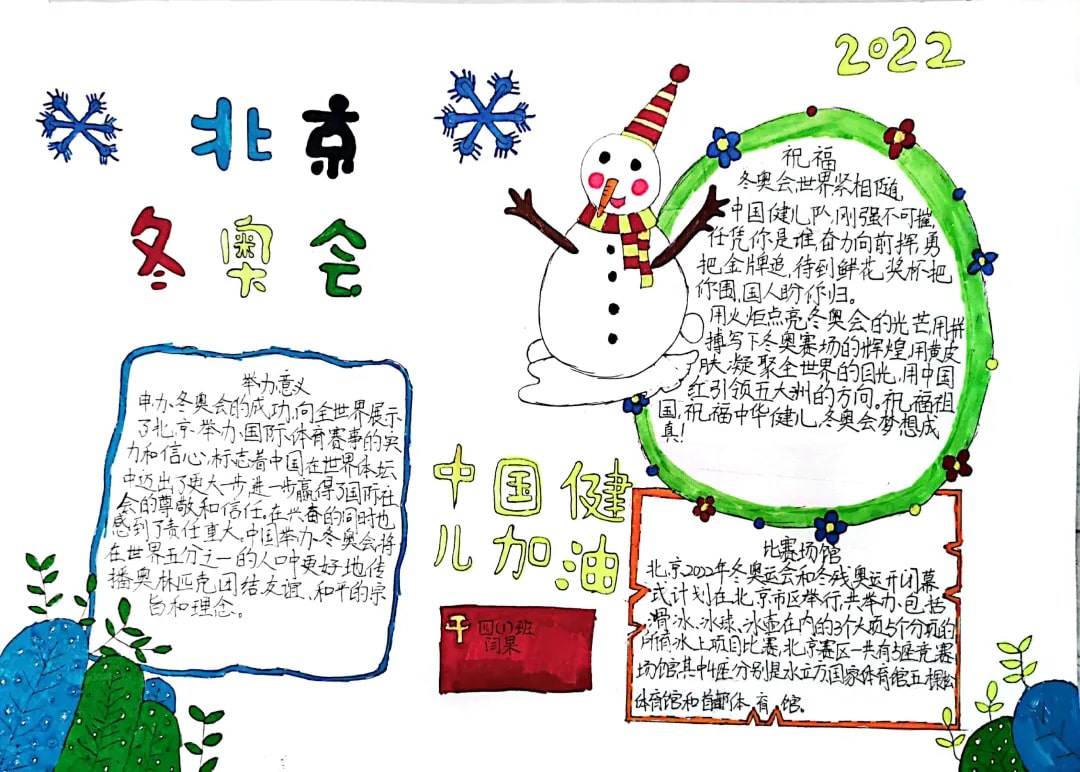 2022
北京
冬奥会
祝福
冬奥会,世界紧相随,
中国健儿队,刚强不可摧,
任凭你是谁,奋力向前挥,勇
把金牌追,待到鲜花,奖杯把
你围,国人盼你归。
用火炬点亮冬奥会的光芒用拼
搏写下冬奥赛场的辉煌,用黄皮
肤凝聚全世界的目光,用中国
红引领五大洲的方向。祝福祖
国,祝福中华健儿,冬奥会梦想成
真!
举办意义
申办冬奥会的成功,向全世界展示
了北京举办国际体育赛事的实
力和信心,标志着中国在世界体坛
中迈出了更大步,进一步赢得了国际社
会的尊敬和信任,在兴奋的同时也
感到了责任重大,中国举办冬奥会将
在世界五分之一的人口中更好地传
播奥林匹克,团结友谊、和平的宗
旨和理念。
中国健
儿加油
四(1)班
闫果
比赛场馆
北京2022年冬奥运会和冬残奥运开闭幕
式计划在北京市区举行,共举办,包括
滑冰、冰球、冰壶在内的3个大项,5个分项的
所有冰上项目比赛,北京赛区一共有5座竞赛
场馆,其中4座分别是水立方国家体育馆五棵松
体育馆和首都体育馆。